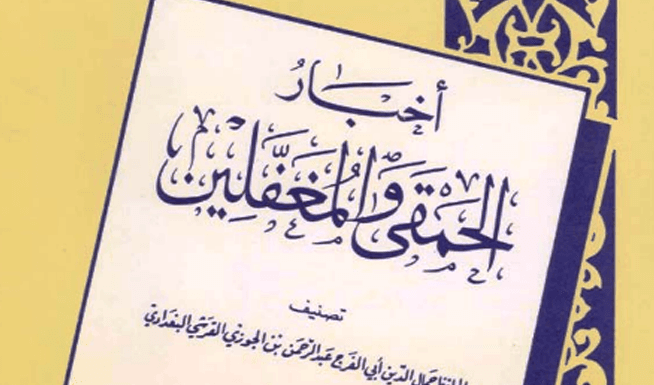 أخبار
الحمقى والمغفلين
تصنيف
جمال الدين أبي الفرج عبد الرحمن بن الجوزي القرشي البغدادي